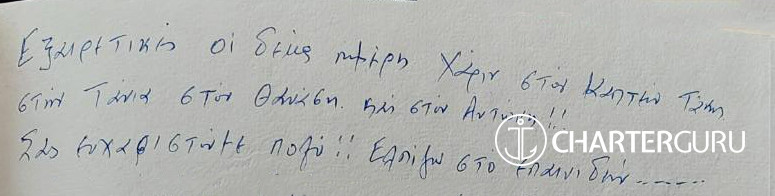 Εξαιρετικές οι δέκα ημέρη Χάριν στόν Καπτεν Τάκη
στην Τάνια στόν Θανάση. και στον Αντώνη!!
Σας ευχαριστούμε πολύ!! Ελπίζω στό επανιδήν......
CHARTERGURU